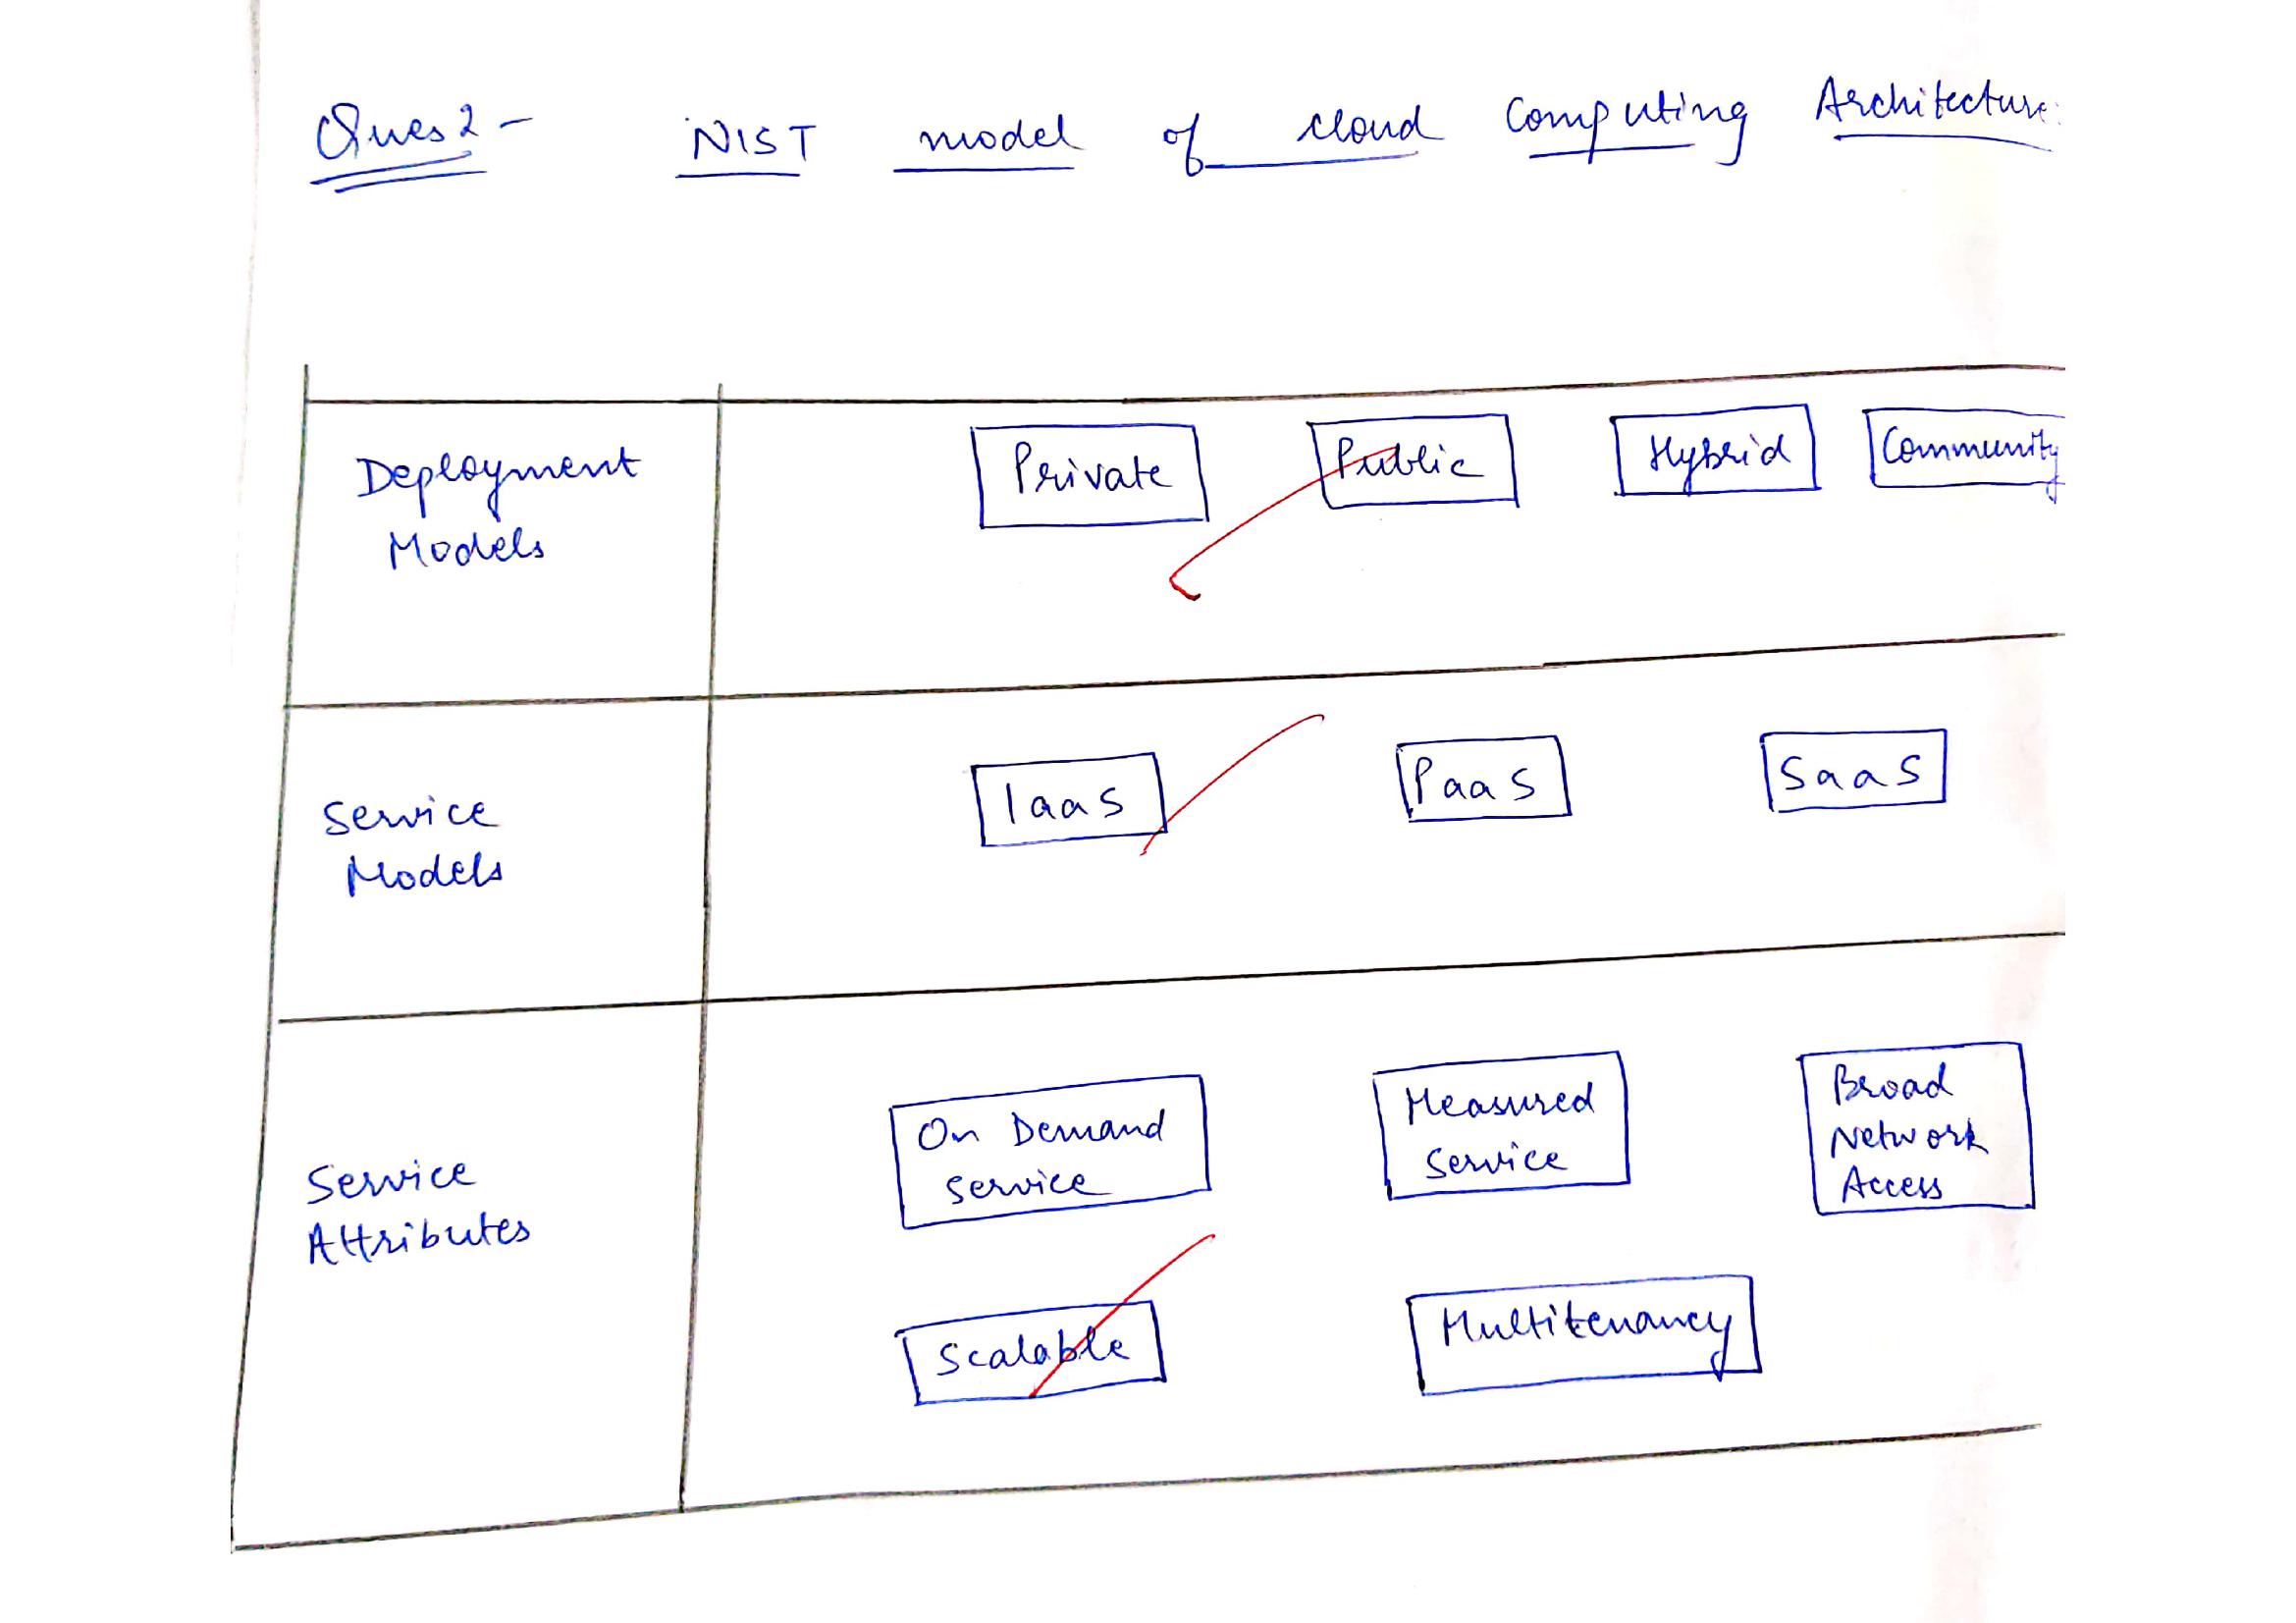 Ques 2 - NIST model of cloud Computing Architecture:
Deployment Models
Private Public Hybrid Community
Service Models
IaaS PaaS SaaS
Service Attributes
On Demand Service
Measured Service
Broad Network Access
Scalable
Multitenancy